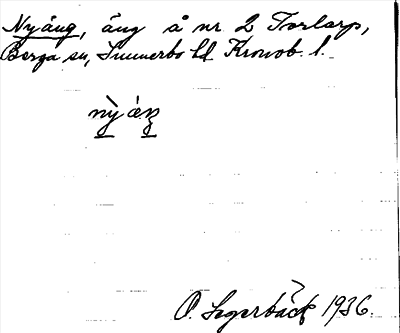 Nyäng, äng å nr 2 Torlarp,
Berga sn, Sunnerbo hd Kronob. l.
nỳ áŋ
P. Segerbäck 1936.